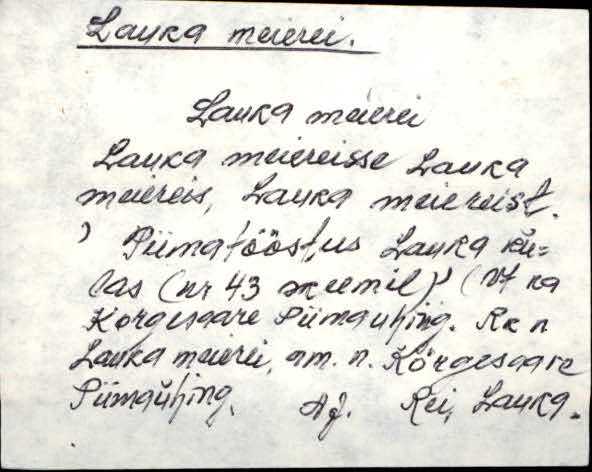 Lauka meierei.
Lauka meierei
Lauka meiereisse Lauka
meiereis, Lauka meiereist.
' Piimatööstus Lauka kü-
las (nr 43 skeemil)' (Vt ka
Kõrgesaare Piimaühing. Rk n
Lauka meierei, am. n. Kõrgesaare
Piimaühing. Aj. Rei, Lauka.